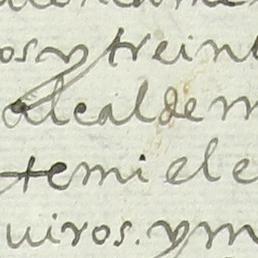 os y treint
alcalde m
temi el e
uiros. y m